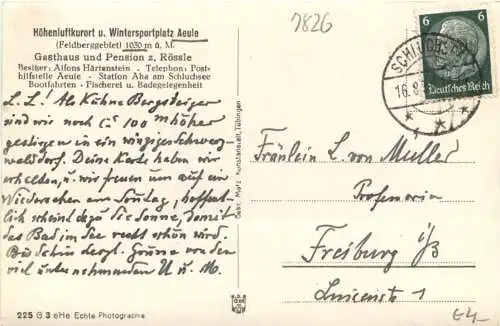 7826
Höhenluftkurort u. Wintersportplatz Aeule
(Feldberggebiet) 1030 m ü. M.
Gasthaus und Pension z. Rössle
Besitzer: Alfons Härtenstein - Telephon: Post-
hilfstelle Aeule - Station Aha am Schluchsee
Bootfahrten - Fischerei u. Badegelegenheit
L. L.! Als Kühne Bergsteiger
sind wir noch ca 100 m höher
gestiegen in ein winziges Schwarz-
walddorf. Deine Karte haben wir
erhalten, u. wir freuen uns auf ein
Wiedersehen am Sonntag, hoffent-
lich scheint dazu die Sonne, damit
das Bad im See recht schön wird.
Bis dahin Grüsse von den
viel unternehmenden U. u. M.
225 G 3 eHe Echte Photographie
Gebr. Metz, Kunstanstalt, Tübingen
SCHLUCHSEE
16.8.
6 6
Deutsches Reich
Fräulein L. von Muller
Professorin
Freiburg i/B
Luisenstr 1
E4-